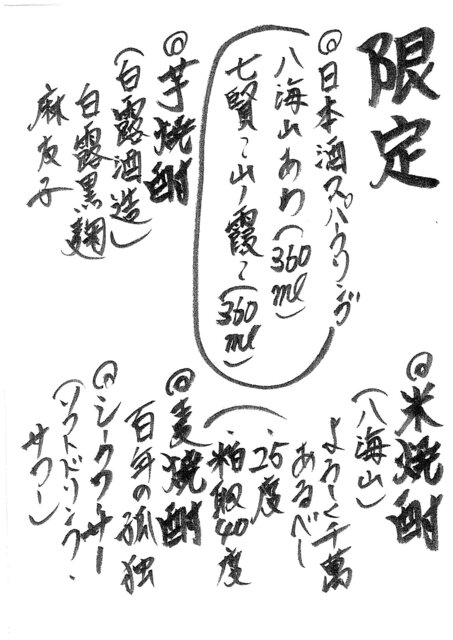 限定
◎日本酒スパークリング
八海山あわ(360ml)
七賢〜山ノ霞〜(360ml)
◎芋焼酎
(白露酒造)
白露黒麹
麻友子
◎米焼酎
(八海山)
よろしく千萬
あるべし
・25度
・粕取40度
◎麦焼酎
百年の孤独
◎シークワーサー
(ソフトドリンク・
サワー)